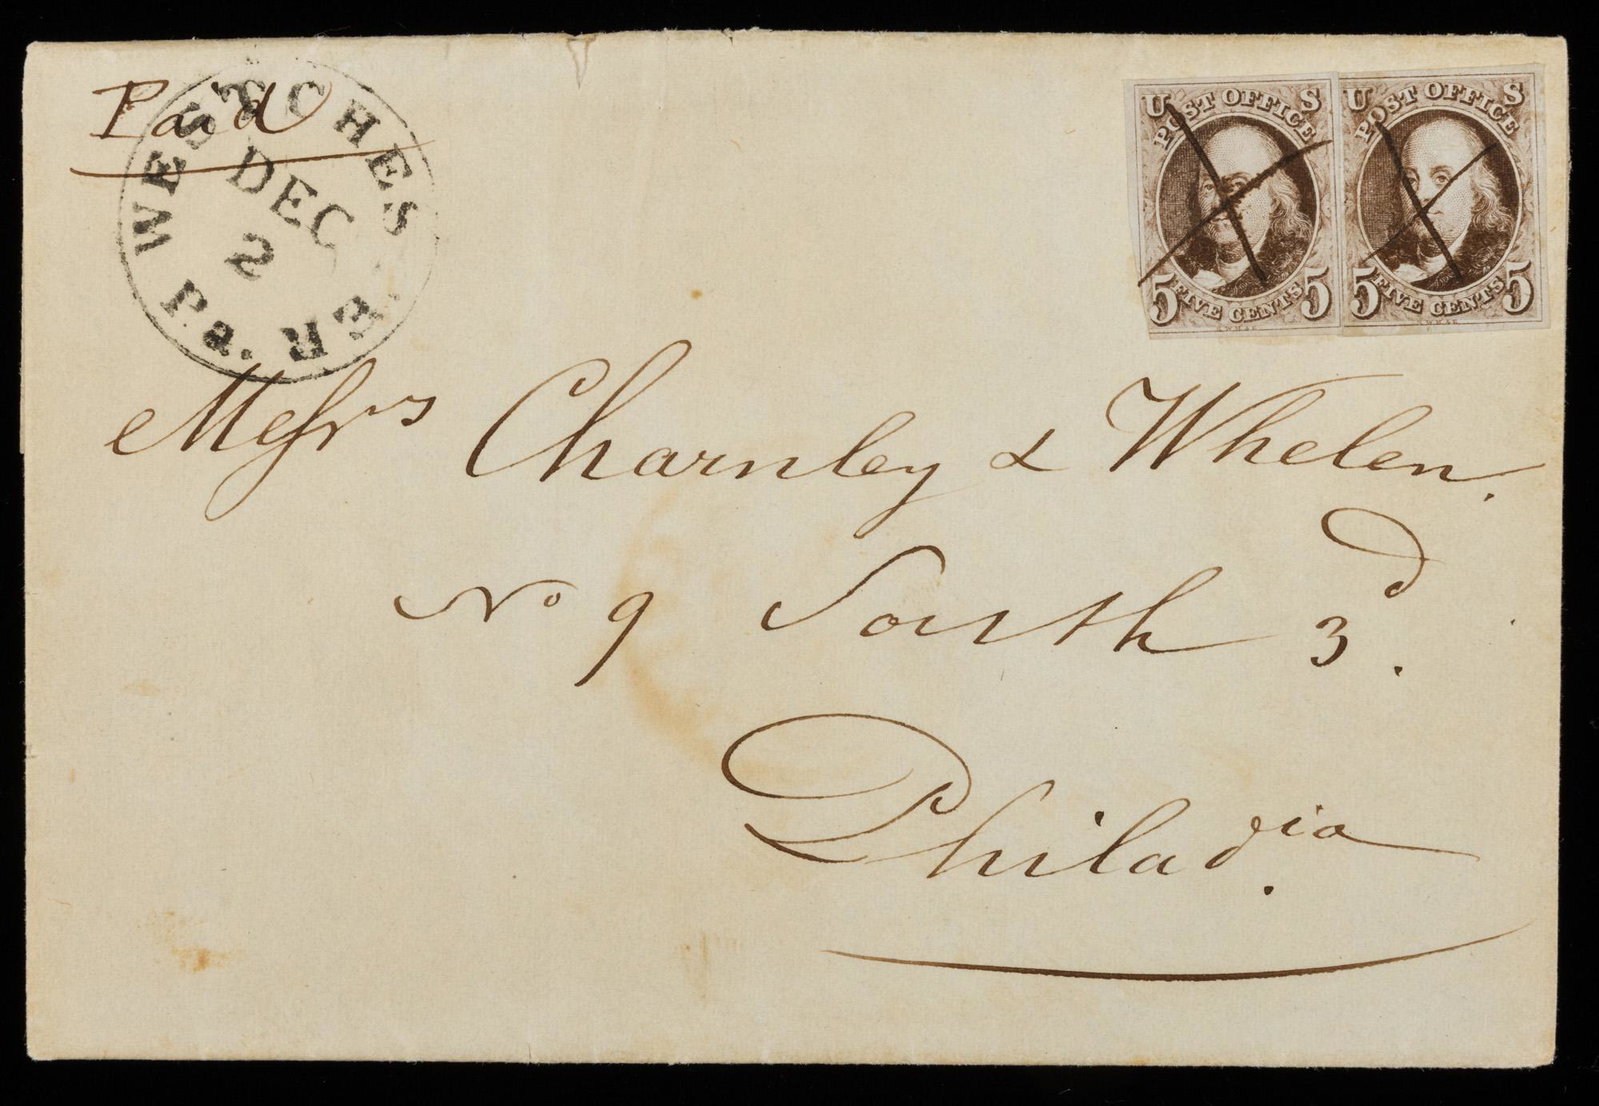 Paid
WESTCHESTER Pa.
DEC
2
U S
POST OFFICE
5 FIVE CENTS 5
U S
POST OFFICE
5 FIVE CENTS 5
Messrs Charnley & Whelen.
No 9 South 3d.
Philadia.